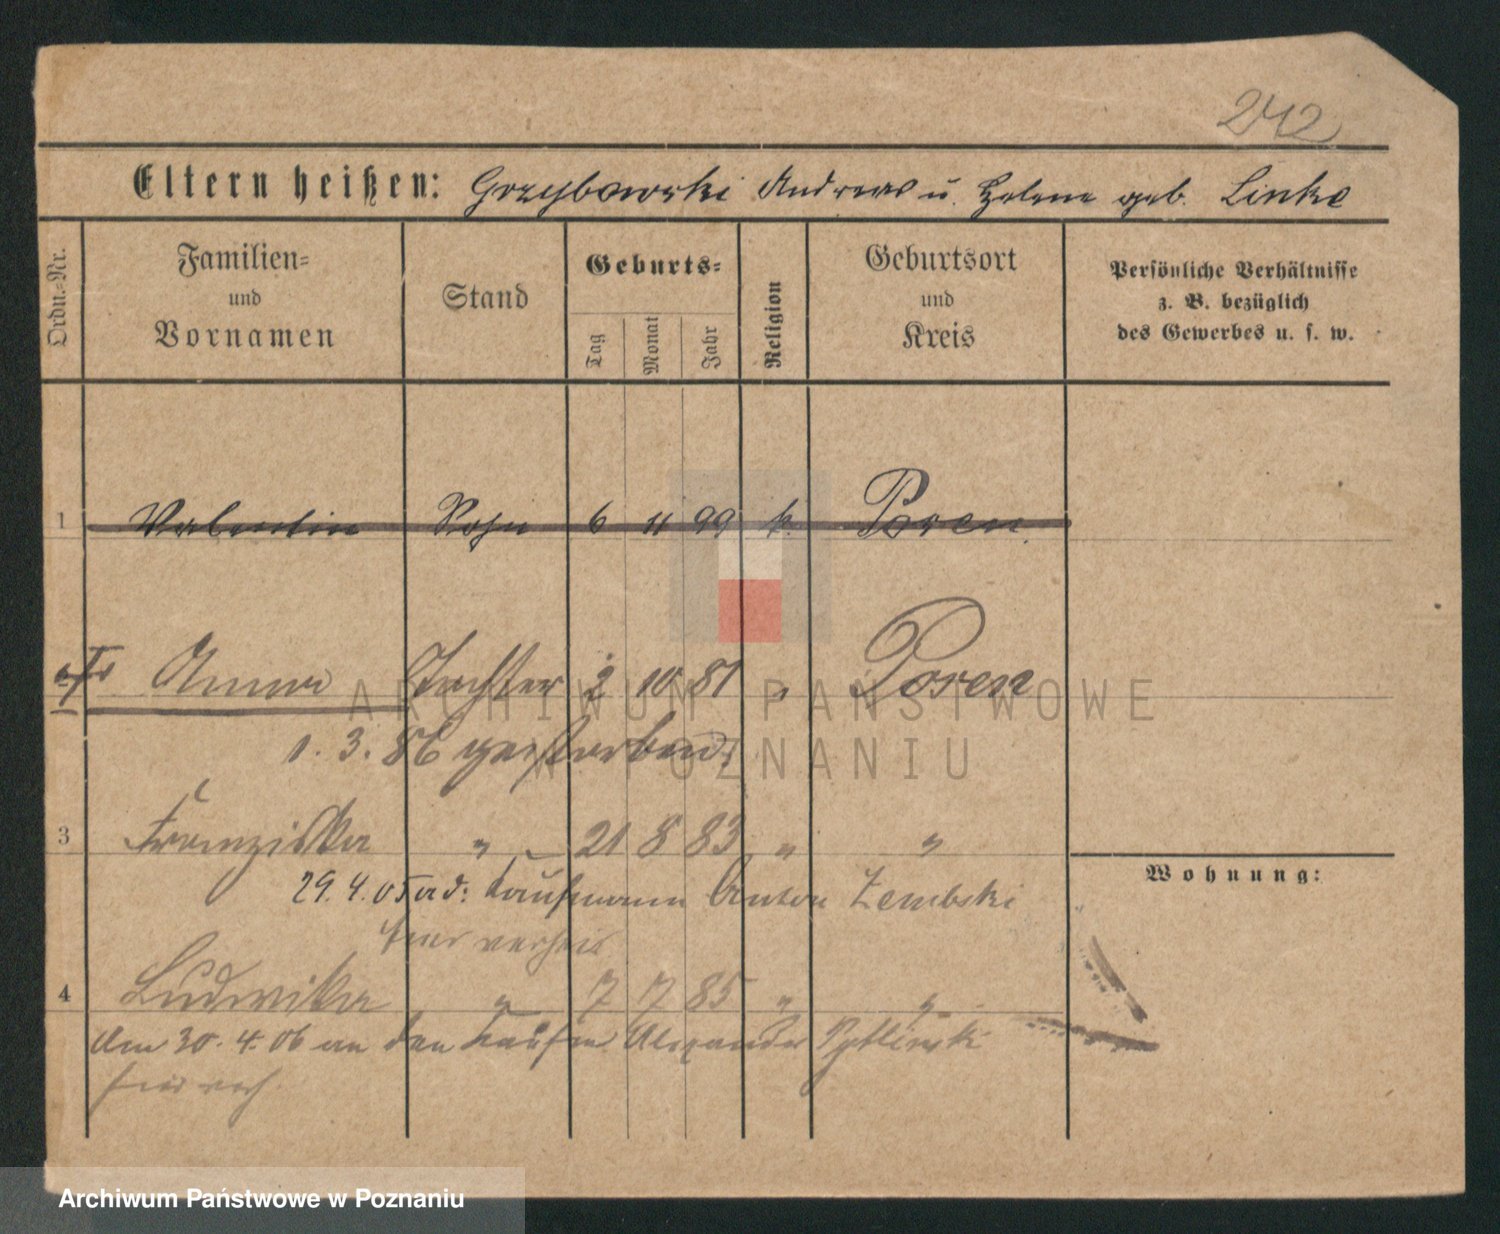 242
Eltern heißen: Grzybowski Andreas u. Helene geb. Linke
Ordn.-Nr.
Familien- und Vornamen
Stand
Geburts-
Tag
Monat
Jahr
Religion
Geburtsort und Kreis
Persönliche Verhältnisse z. B. bezüglich des Gewerbes u. s. w.
1 Valentin Sohn 6 11 99 k. Posen
Anna Tochter 2 10 81 " Posen
1. 3. 86 gestorben.
3 Franziska " 21 8 83 " "
Wohnung:
29. 4. 05 a d: Kaufmann Anton Zembski
hier verheir
4 Ludwika " 7 7 85 " "
Am 30. 4. 06 an den Kaufm Alexander
hier verh
ARCHIWUM PAŃSTWOWE
W POZNANIU
Archiwum Państwowe w Poznaniu